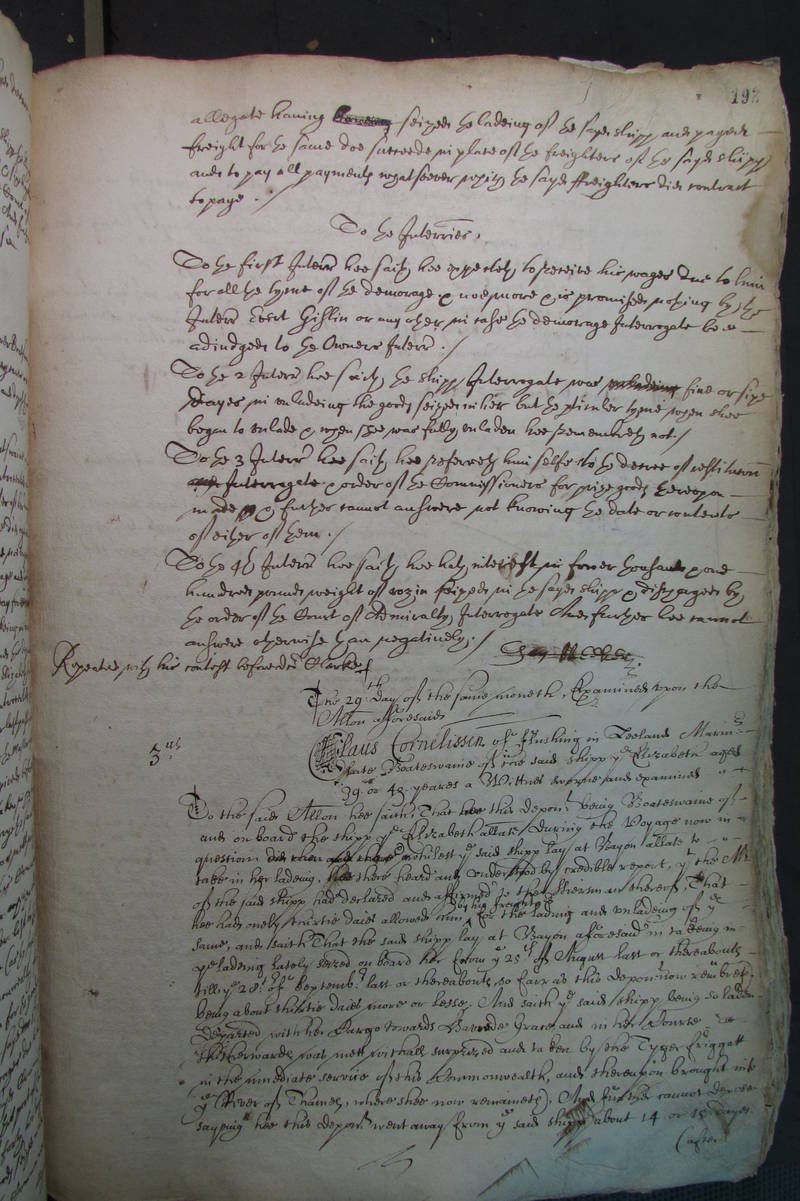 192
allegate having seized the ladeing of the sayd shipp and payed
freight for the same doe succeede in place of the freighters of the sayd shipp
and to pay all payments whatsoever which the sayd ffreighters did contract
to paye ./
To the Interries,
To the first Interr hee saith hee expecteth to receive his wages due to him
for all the tyme of the demorage & noe more & is promised nothing by the
Interr Evert Gislin or any other in case the demorage Interrogate be
adiudged to the Owners Interr ./
To the 2 Interr hee saith the shipp Interrogate was five or sixe
dayes in unladeing the goods seized in her but the perticuler tyme when shee
began to unlade & when shee was fully unladen hee remembreth not ./
To the 3 Interr hee saith hee referreth himselfe to the decree of restitucon
Interrogate & order of the Commissioners for prize goods thereupon
made & further cannot answere not knowing the date or contents
of either of them ./
To the 4th Interr hee saith hee hath interest in fower thousand & one
hundred pounds weight of rozin seized in the sayd shipp & discharged by
the order of the Court of Admiralty Interrogate And further hee cannot
answere otherwise than negatively ./
Repeated with his contest before doctor Clarke
The 29th day of the same moneth. Examined upon the
Allon aforesaid
3us
Claus Cornelissen of fflushing in Zeeland Mariner
late Boateswaine of the said shipp ye Elizabeth aged
39 or 40 yeares a Wittnes sworne and examined
To the said Allon hee saith, That this deponent being Boateswaine of
and on board the shipp ye Elizabeth allate during the Voyage now in
question did whilest ye said shipp lay at Bayon allate to
take in her ladeing, there heard and understood by credible report, yt the Mr
of the said shipp had declared and affirmed to the Steersman thereof, That
hee had onely thirtie daies allowed him by his freighters for the lading and unladeing of ye
same, and saith That the said shipp lay at Bayon aforesaid in takeing in
ye ladeing lately seized on board her from ye 25th of August last or thereabouts
till ye 28th of September last or thereabouts, so farr as this deponent now remembreth
being about thirtie daies more or lesse, And saith ye said shipp being so laden
departed with her Cargo towards Haver de Grace and in her Course
thitherwards was mett withall surprized and taken by the Tyger ffriggott
in the immediate service of this Commonwealth, and thereupon brought into
ye River of Thames, where shee now remaineth. And further cannot depose
sayeing hee this deponent went away from ye said shipp about 14 or 15 dayes
(after